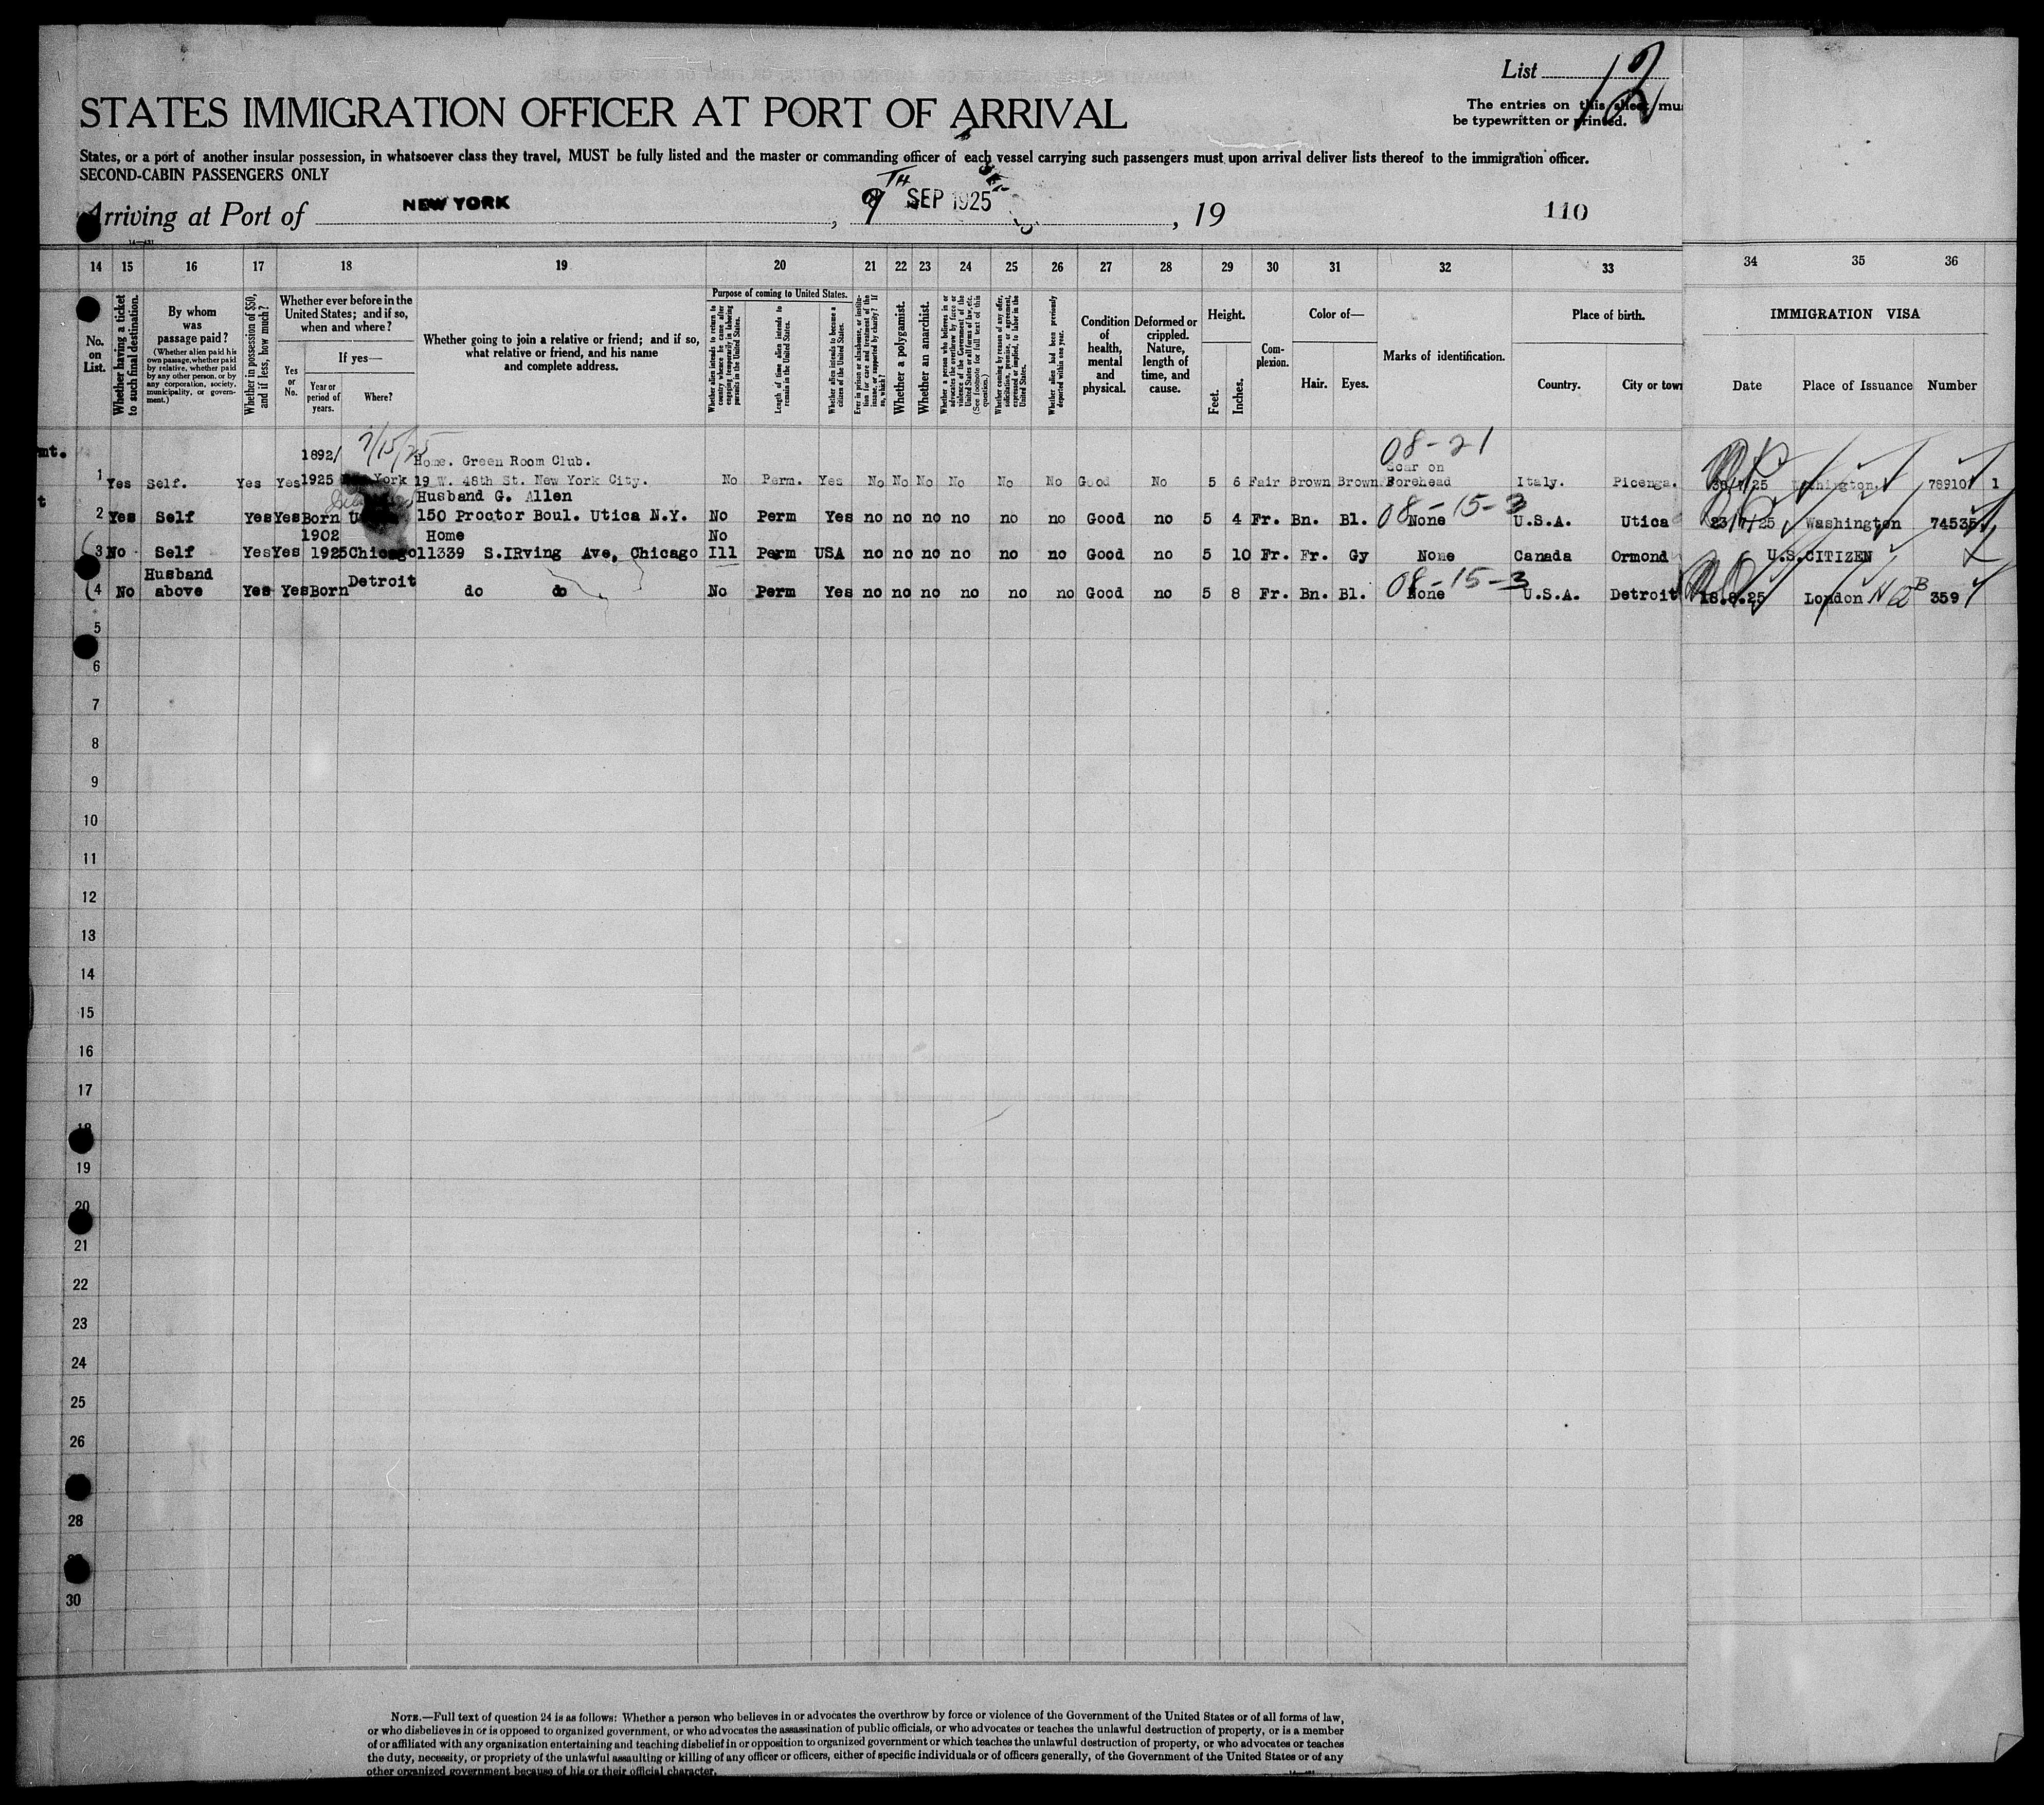 List 12
The entries on this sheet mu
be typewritten or printed.
STATES IMMIGRATION OFFICER AT PORT OF ARRIVAL
States, or a port of another insular possession, in whatsoever class they travel, MUST be fully listed and the master or commanding officer of each vessel carrying such passengers must upon arrival deliver lists thereof to the immigration officer.
SECOND-CABIN PASSENGERS ONLY
Arriving at Port of NEW YORK, 9TH SEP 1925, 19 110
14 15 16 17 18 19 20 21 22 23 24 25 26 27 28 29 30 31 32 33 34 35 36
No. on List.
Whether having a ticket to such final destination.
By whom was passage paid?
(Whether alien paid his own passage, whether paid by relative, whether paid by any other person, or by any corporation, society, municipality, or government.)
Whether in possession of $50, and if less, how much?
Whether ever before in the United States; and if so, when and where?
Yes or No.
If yes—
Year or period of years.
Where?
Whether going to join a relative or friend; and if so, what relative or friend, and his name and complete address.
Purpose of coming to United States.
Whether alien intends to return to country whence he came after engaging temporarily in laboring pursuits in the United States.
Length of time alien intends to remain in the United States.
Whether alien intends to become a citizen of the United States.
Ever in prison or almshouse, or institution for care and treatment of the insane, or supported by charity? If so, which?
Whether a polygamist.
Whether an anarchist.
Whether a person who believes in or advocates the overthrow by force or violence of the Government of the United States or all forms of law, etc. (See footnote for full text of this question.)
Whether coming by reason of any offer, solicitation, promise, or agreement, expressed or implied, to labor in the United States.
Whether alien had been previously deported within one year.
Condition of health, mental and physical.
Deformed or crippled. Nature, length of time, and cause.
Height.
Feet. Inches.
Complexion.
Color of—
Hair. Eyes.
Marks of identification.
Place of birth.
Country. City or town
IMMIGRATION VISA
Date Place of Issuance Number
nt. 1892/ 7/15/25 Home. Green Room Club. 08-21 Scar on
1 Yes Self. Yes Yes 1925 York 19 W. 48th St. New York City. No Perm. Yes No No No No No No Good No 5 6 Fair Brown Brown Forehead Italy. Picenga. 25 78910 1
t Husband G. Allen 08-15-3
2 Yes Self Yes Yes Born 150 Proctor Boul. Utica N.Y. No Perm Yes no no no no no no Good no 5 4 Fr. Bn. Bl. None U.S.A. Utica 23/7/25 Washington 74535
1902 Home No
3 No Self Yes Yes 1925 Chicago 11339 S.IRving Ave, Chicago Ill Perm USA no no no no no no Good no 5 10 Fr. Fr. Gy None Canada Ormond U.S.CITIZEN
Husband Detroit 08-15-3
4 No above Yes Yes Born do do No Perm Yes no no no no no no Good no 5 8 Fr. Bn. Bl. None U.S.A. Detroit 18.8.25 London B 359
5
6
7
8
9
10
11
12
13
14
15
16
17
18
19
20
21
22
23
24
25
26
28
30
NOTE.—Full text of question 24 is as follows: Whether a person who believes in or advocates the overthrow by force or violence of the Government of the United States or of all forms of law,
or who disbelieves in or is opposed to organized government, or who advocates the assassination of public officials, or who advocates or teaches the unlawful destruction of property, or is a member
of or affiliated with any organization entertaining and teaching disbelief in or opposition to organized government or which teaches the unlawful destruction of property, or who advocates or teaches
the duty, necessity, or propriety of the unlawful assaulting or killing of any officer or officers, either of specific individuals or of officers generally, of the Government of the United States or of any
other organized government because of his or their official character.